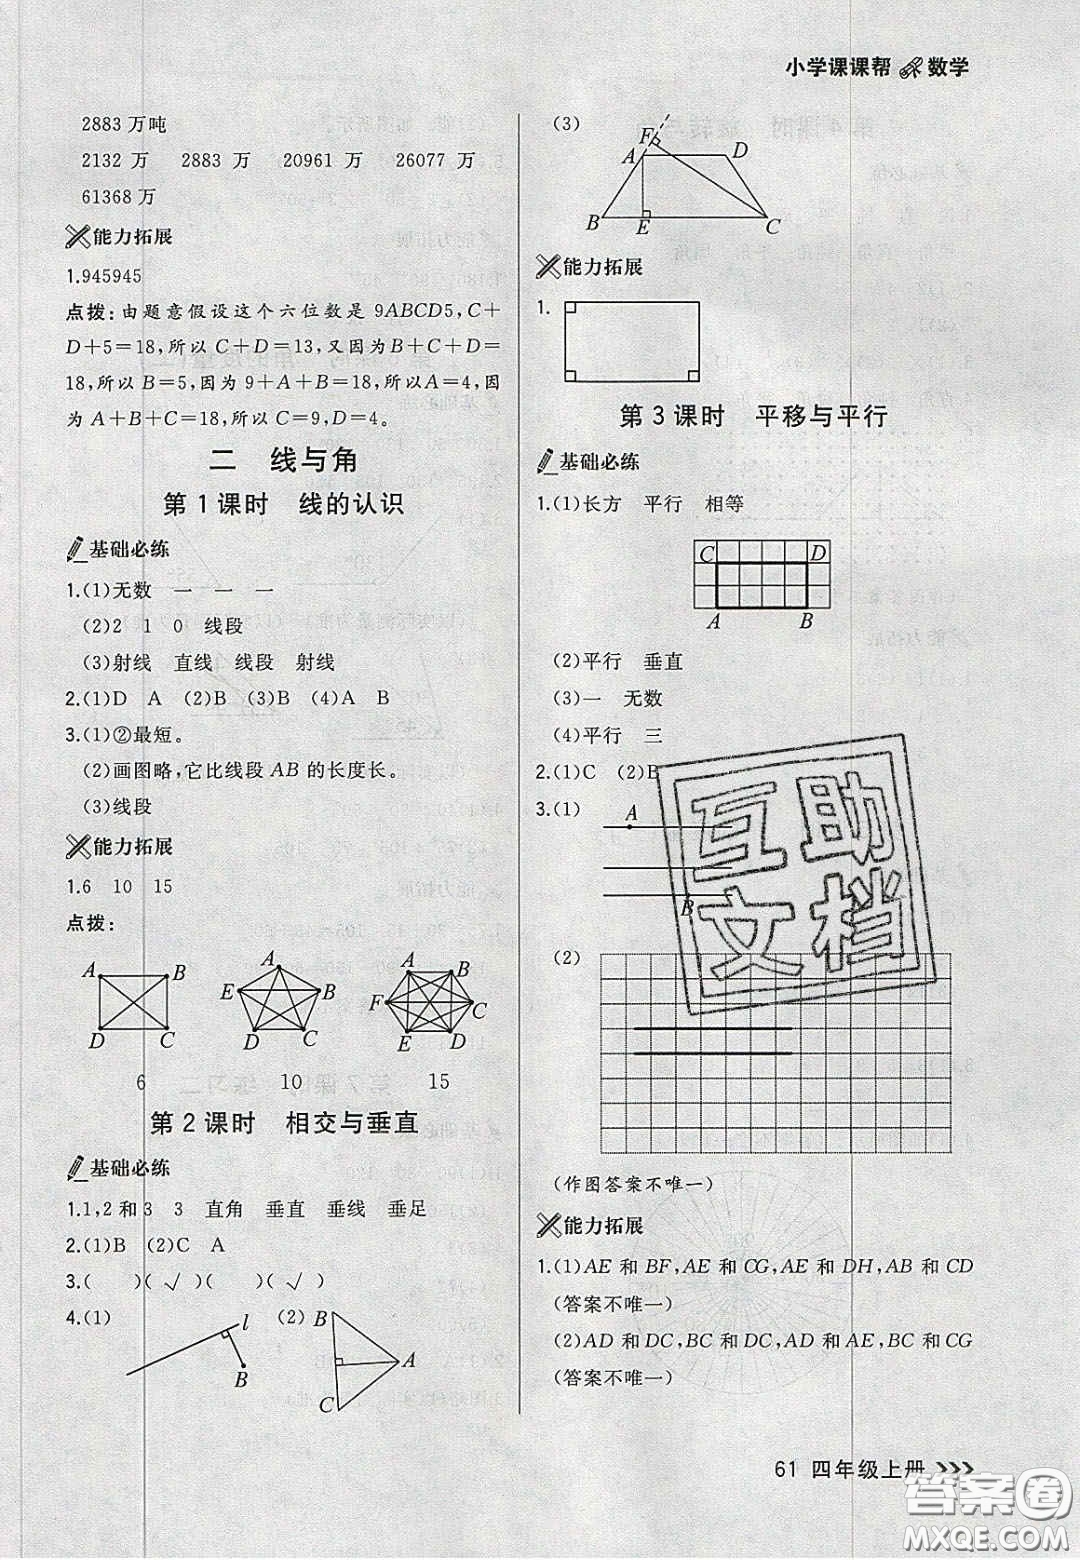 小学课课帮 数学
2883 万吨
2132 万 2883 万 20961 万 26077 万
61368 万
能力拓展
1.945945
点拨:由题意假设这个六位数是 9ABCD5,C+
D+5=18,所以 C+D=13,又因为B+C+D=
18,所以 B=5,因为 9+A+B=18,所以A=4,因
为 A+B+C=18,所以 C=9,D=4。
二 线与角
第 1 课时 线的认识
基础必练
1.(1)无数 一 一 一
(2)2 1 0 线段
(3)射线 直线 线段 射线
2.(1)D A (2)B (3)B (4)A B
3.(1)②最短。
(2)画图略,它比线段 AB 的长度长。
(3)线段
能力拓展
1.6 10 15
点拨:
A B
D C
6
A
E B
D C
10
A B
F C
E D
15
第 2 课时 相交与垂直
基础必练
1.1,2 和 3 3 直角 垂直 垂线 垂足
2.(1)B (2)C A
3.( )(√)( )(√)
4.(1)
l
B
(2)
B
A
C
(3)
F
A D
B E C
能力拓展
1.
第 3 课时 平移与平行
基础必练
1.(1)长方 平行 相等
C D
A B
(2)平行 垂直
(3)一 无数
(4)平行 三
2.(1)C (2)B
3.(1)
A
B
(2)
(作图答案不唯一)
能力拓展
1.(1)AE 和 BF,AE 和 CG,AE 和 DH,AB 和 CD
(答案不唯一)
(2)AD 和 DC,BC 和 DC,AD 和 AE,BC 和 CG
(答案不唯一)
互助
文档
61 四年级上册
答案圈
MXQE.COM